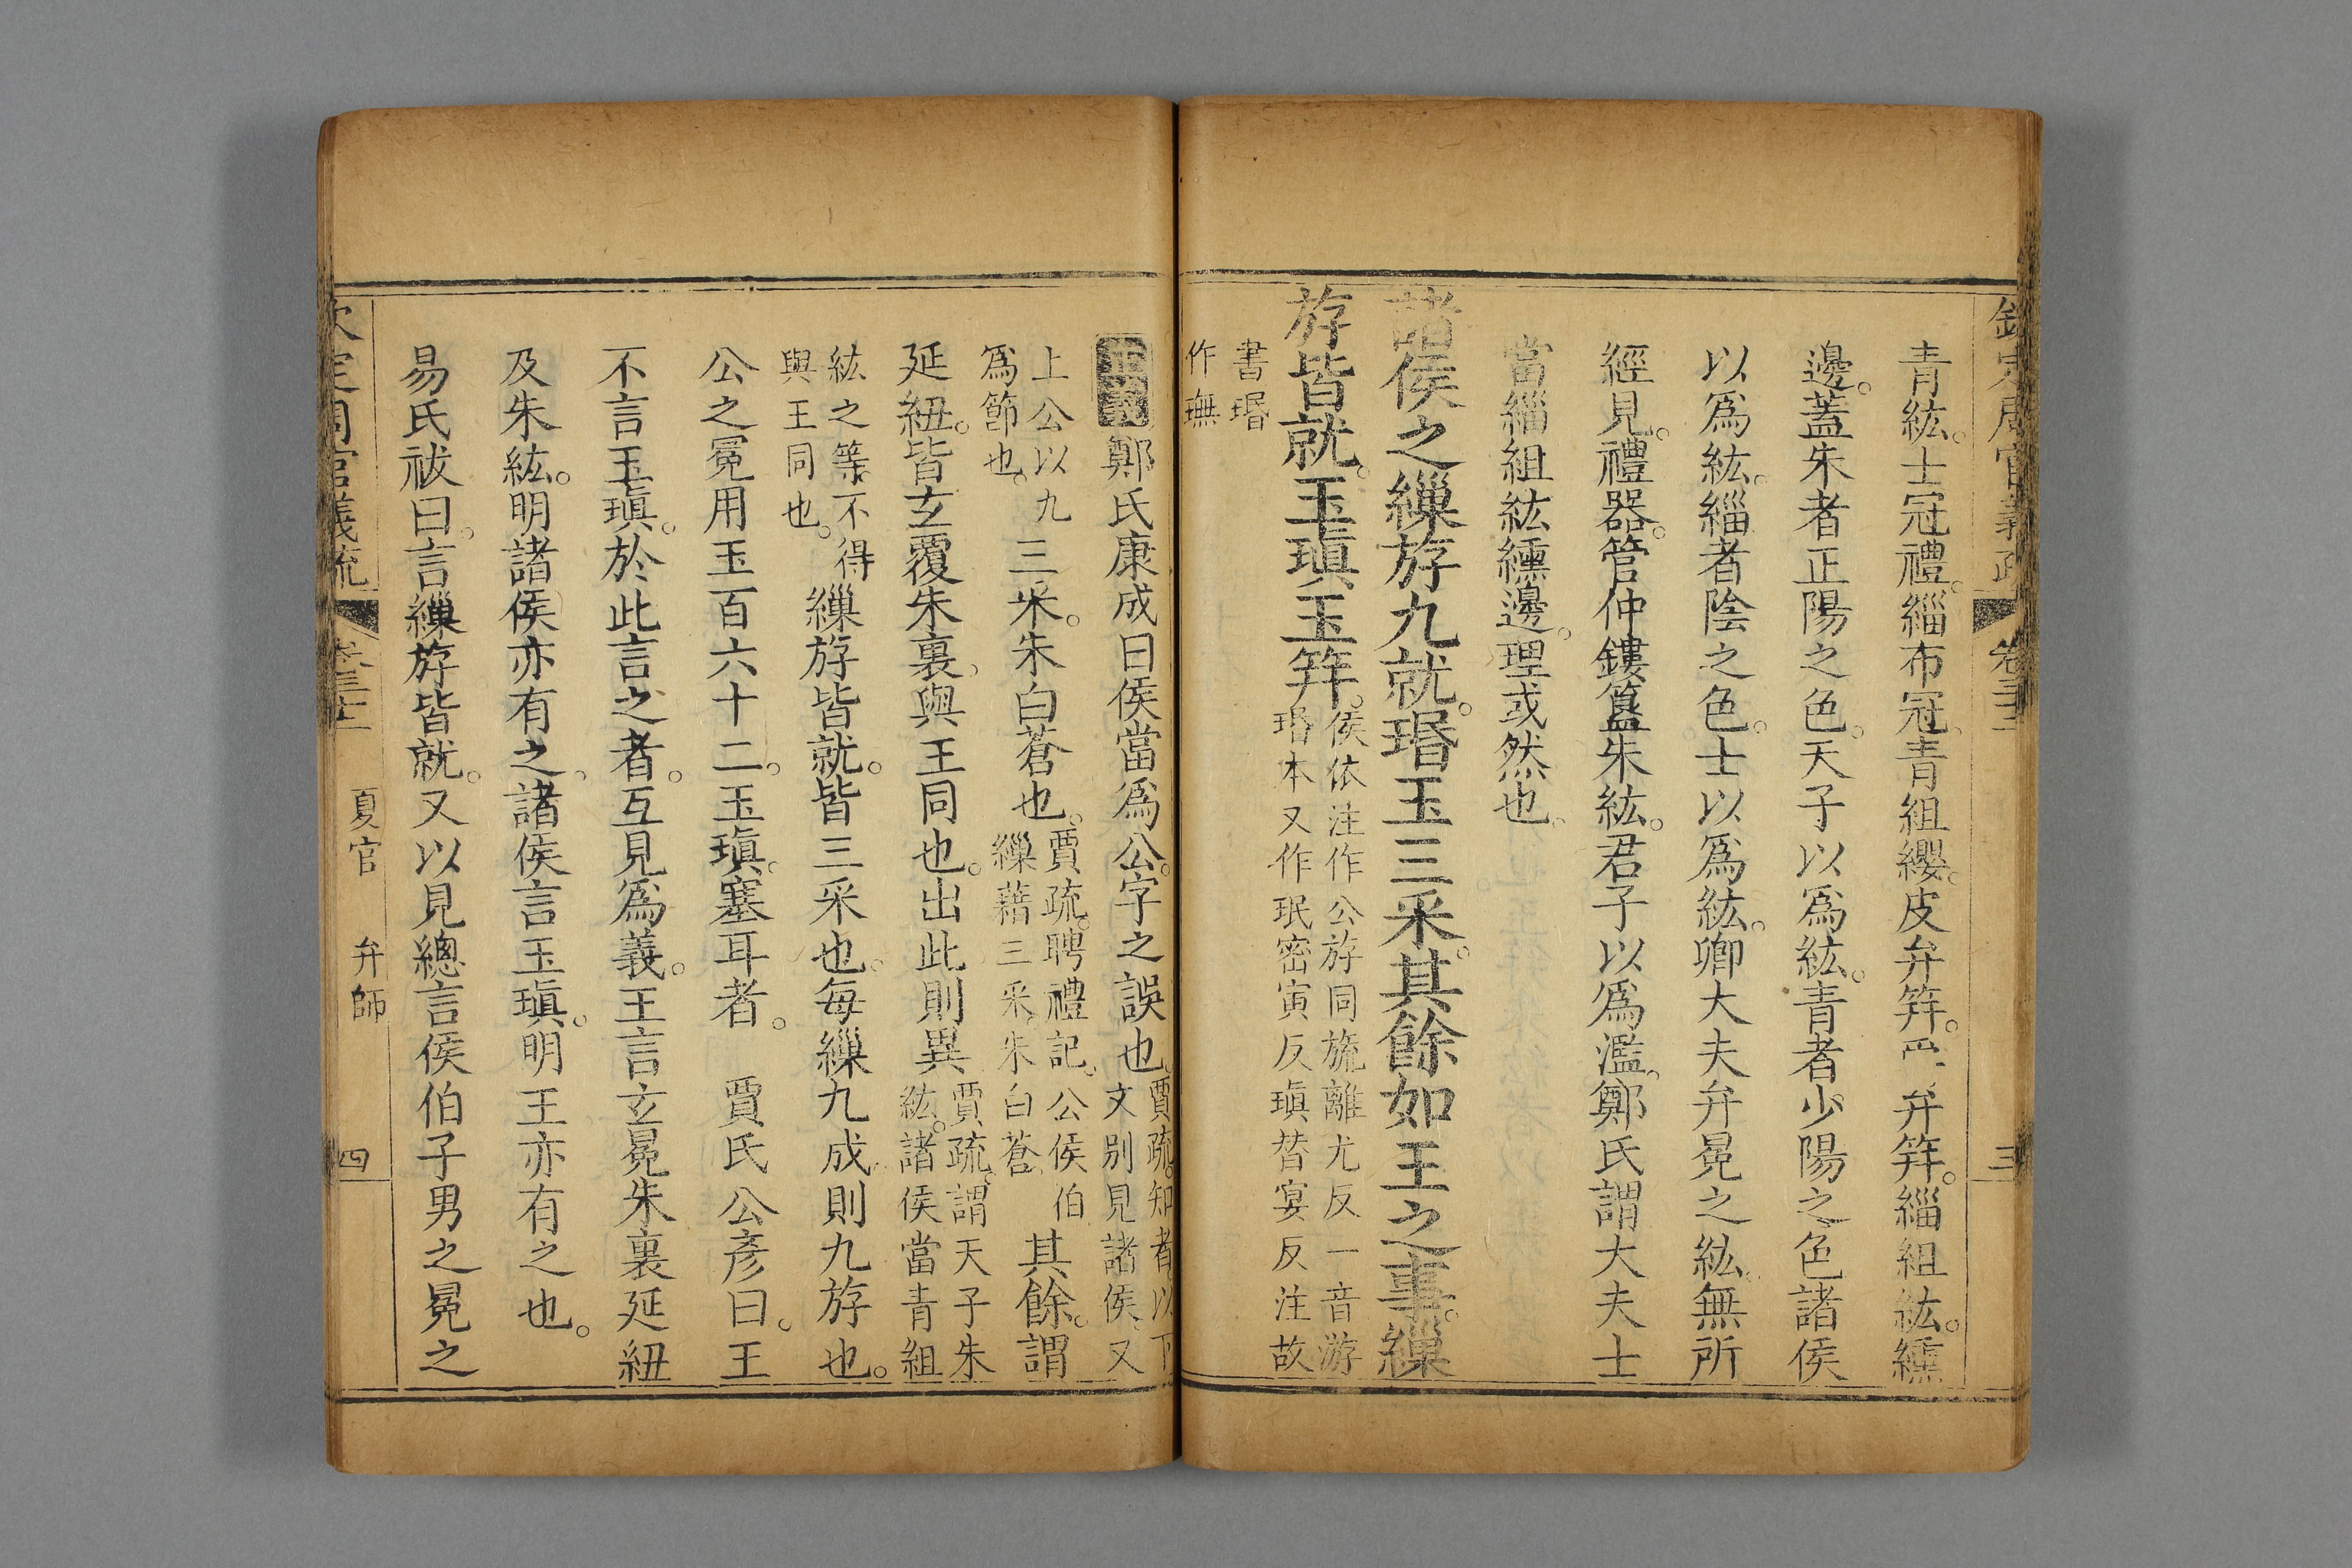 青紘。士冠禮。緇布冠。青組纓。皮弁笄。弁笄。緇組紘。纁
邊。蓋朱者正陽之色。天子以爲紘。青者少陽之色諸侯
以爲紘。緇者陰之色。士以爲紘。卿大夫弁冕之紘。無所
經見。禮器。管仲鏤簋朱紘。君子以爲濫。鄭氏謂大夫士
當緇組紘纁邊。理或然也。
諸侯之繅斿九就。瑉玉三采。其餘如王之事。繅
斿皆就。玉瑱玉笄。
侯依注作公斿同旒離尤反一音游
瑉本又作珉密寅反瑱替宴反注故
書瑉
作璑
正義
鄭氏康成曰侯當爲公。字之誤也。
賈疏。知者以下
文別見諸侯。又
上公以九
爲節也。
三采。朱白蒼也。
賈疏。聘禮記。公侯伯
繅藉三采。朱白蒼
其餘。謂
延紐。皆玄覆朱裏。與王同也。出此則異
賈疏。謂天子朱
紘。諸侯當青組
紘之等。不得
與王同也。
繅斿皆就。皆三采也。每繅九成。則九斿也。
公之冕用玉百六十二。玉瑱。塞耳者。 賈氏公彥曰。王
不言玉瑱。於此言之者。互見爲義。王言玄冕朱裏延紐
及朱紘。明諸侯亦有之。諸侯言玉瑱。明王亦有之也。
易氏祓曰。言繅斿皆就。又以見總言侯伯子男之冕之
夏官 弁師 四